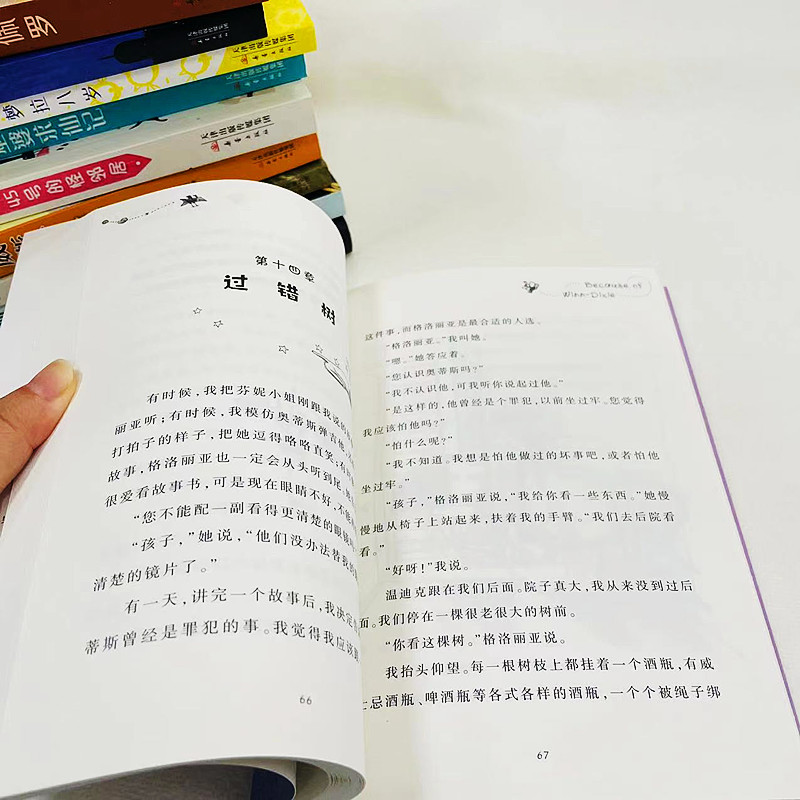 佩罗
天津出版传媒集团
新蕾出版社
天津出版传媒集团
新蕾出版社
梦拉八岁
天津出版传媒集团
新蕾出版社
婆求仙记
天津出版传媒集团
新蕾出版社
45号的怪邻居
第十四章
过错树
有时候，我把芬妮小姐刚跟我说的
丽亚听；有时候，我模仿奥蒂斯弹吉他、
打拍子的样子，把她逗得咯咯直笑；有
故事，格洛丽亚也一定会从头听到尾。
很爱看故事书，可是现在眼睛不好，不能
“您不能配一副看得更清楚的眼镜
“孩子，”她说，“他们没办法替我的
清楚的镜片了。”
有一天，讲完一个故事后，我决定
蒂斯曾经是罪犯的事。我觉得我应该
66
Because of
Winn-Dixie
这件事，而格洛丽亚是最合适的人选。
“格洛丽亚。”我叫她。
“嗯。”她答应着。
“您认识奥蒂斯吗？”
“我不认识他，可我听你说起过他。”
“是这样的，他曾经是个罪犯，以前坐过牢。您觉得
我应该怕他吗？”
“怕什么呢？”
“我不知道。我想是怕他做过的坏事吧，或者怕他
坐过牢。”
“孩子，”格洛丽亚说，“我给你看一些东西。”她慢
慢地从椅子上站起来，扶着我的手臂。“我们去后院看
看。”
“好呀！”我说。
温迪克跟在我们后面。院子真大，我从来没到过后
面。我们停在一棵很老很大的树前。
“你看这棵树。”格洛丽亚说。
我抬头仰望。每一根树枝上都挂着一个酒瓶，有威
士忌酒瓶、啤酒瓶等各式各样的酒瓶，一个个被绳子绑
67